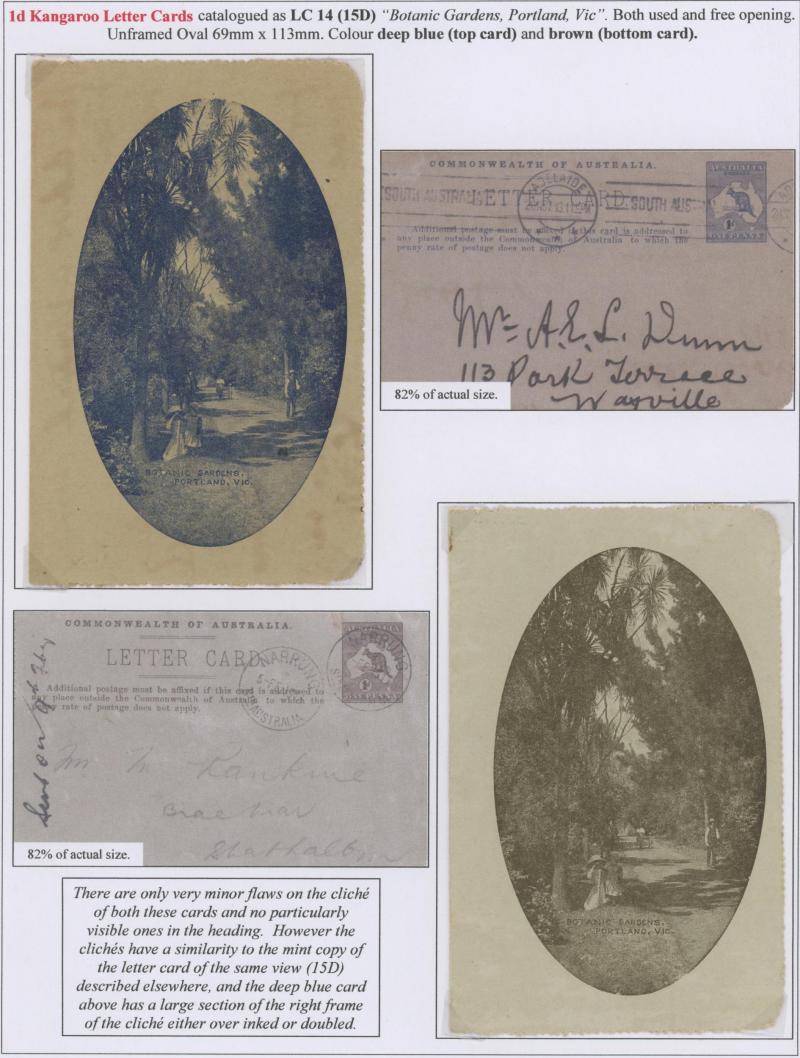 1d Kangaroo Letter Cards catalogued as LC 14 (15D) "Botanic Gardens, Portland, Vic". Both used and free opening.
Unframed Oval 69mm x 113mm. Colour deep blue (top card) and brown (bottom card).
BOTANIC GARDENS.
PORTLAND, VIC.
COMMONWEALTH OF AUSTRALIA.
LETTER CARD.
SOUTH AUSTRALIA
ADELAIDE
SOUTH AUS
AUSTRALIA
1D
ONE PENNY
Additional postage must be affixed if this card is addressed to
any place outside the Commonwealth of Australia to which the
penny rate of postage does not apply.
Mr A.E.L. Dunn
113 Park Terrace
Wayville
82% of actual size.
COMMONWEALTH OF AUSTRALIA.
LETTER CARD
NARRUNG
AUSTRALIA
NARRUNG
ONE PENNY
Additional postage must be affixed if this card is addressed to
any place outside the Commonwealth of Australia to which the
penny rate of postage does not apply.
Sent on
Mr M Rankine
Braemar
Strathalbyn
82% of actual size.
BOTANIC GARDENS.
PORTLAND, VIC.
There are only very minor flaws on the cliché
of both these cards and no particularly
visible ones in the heading. However the
clichés have a similarity to the mint copy of
the letter card of the same view (15D)
described elsewhere, and the deep blue card
above has a large section of the right frame
of the cliché either over inked or doubled.